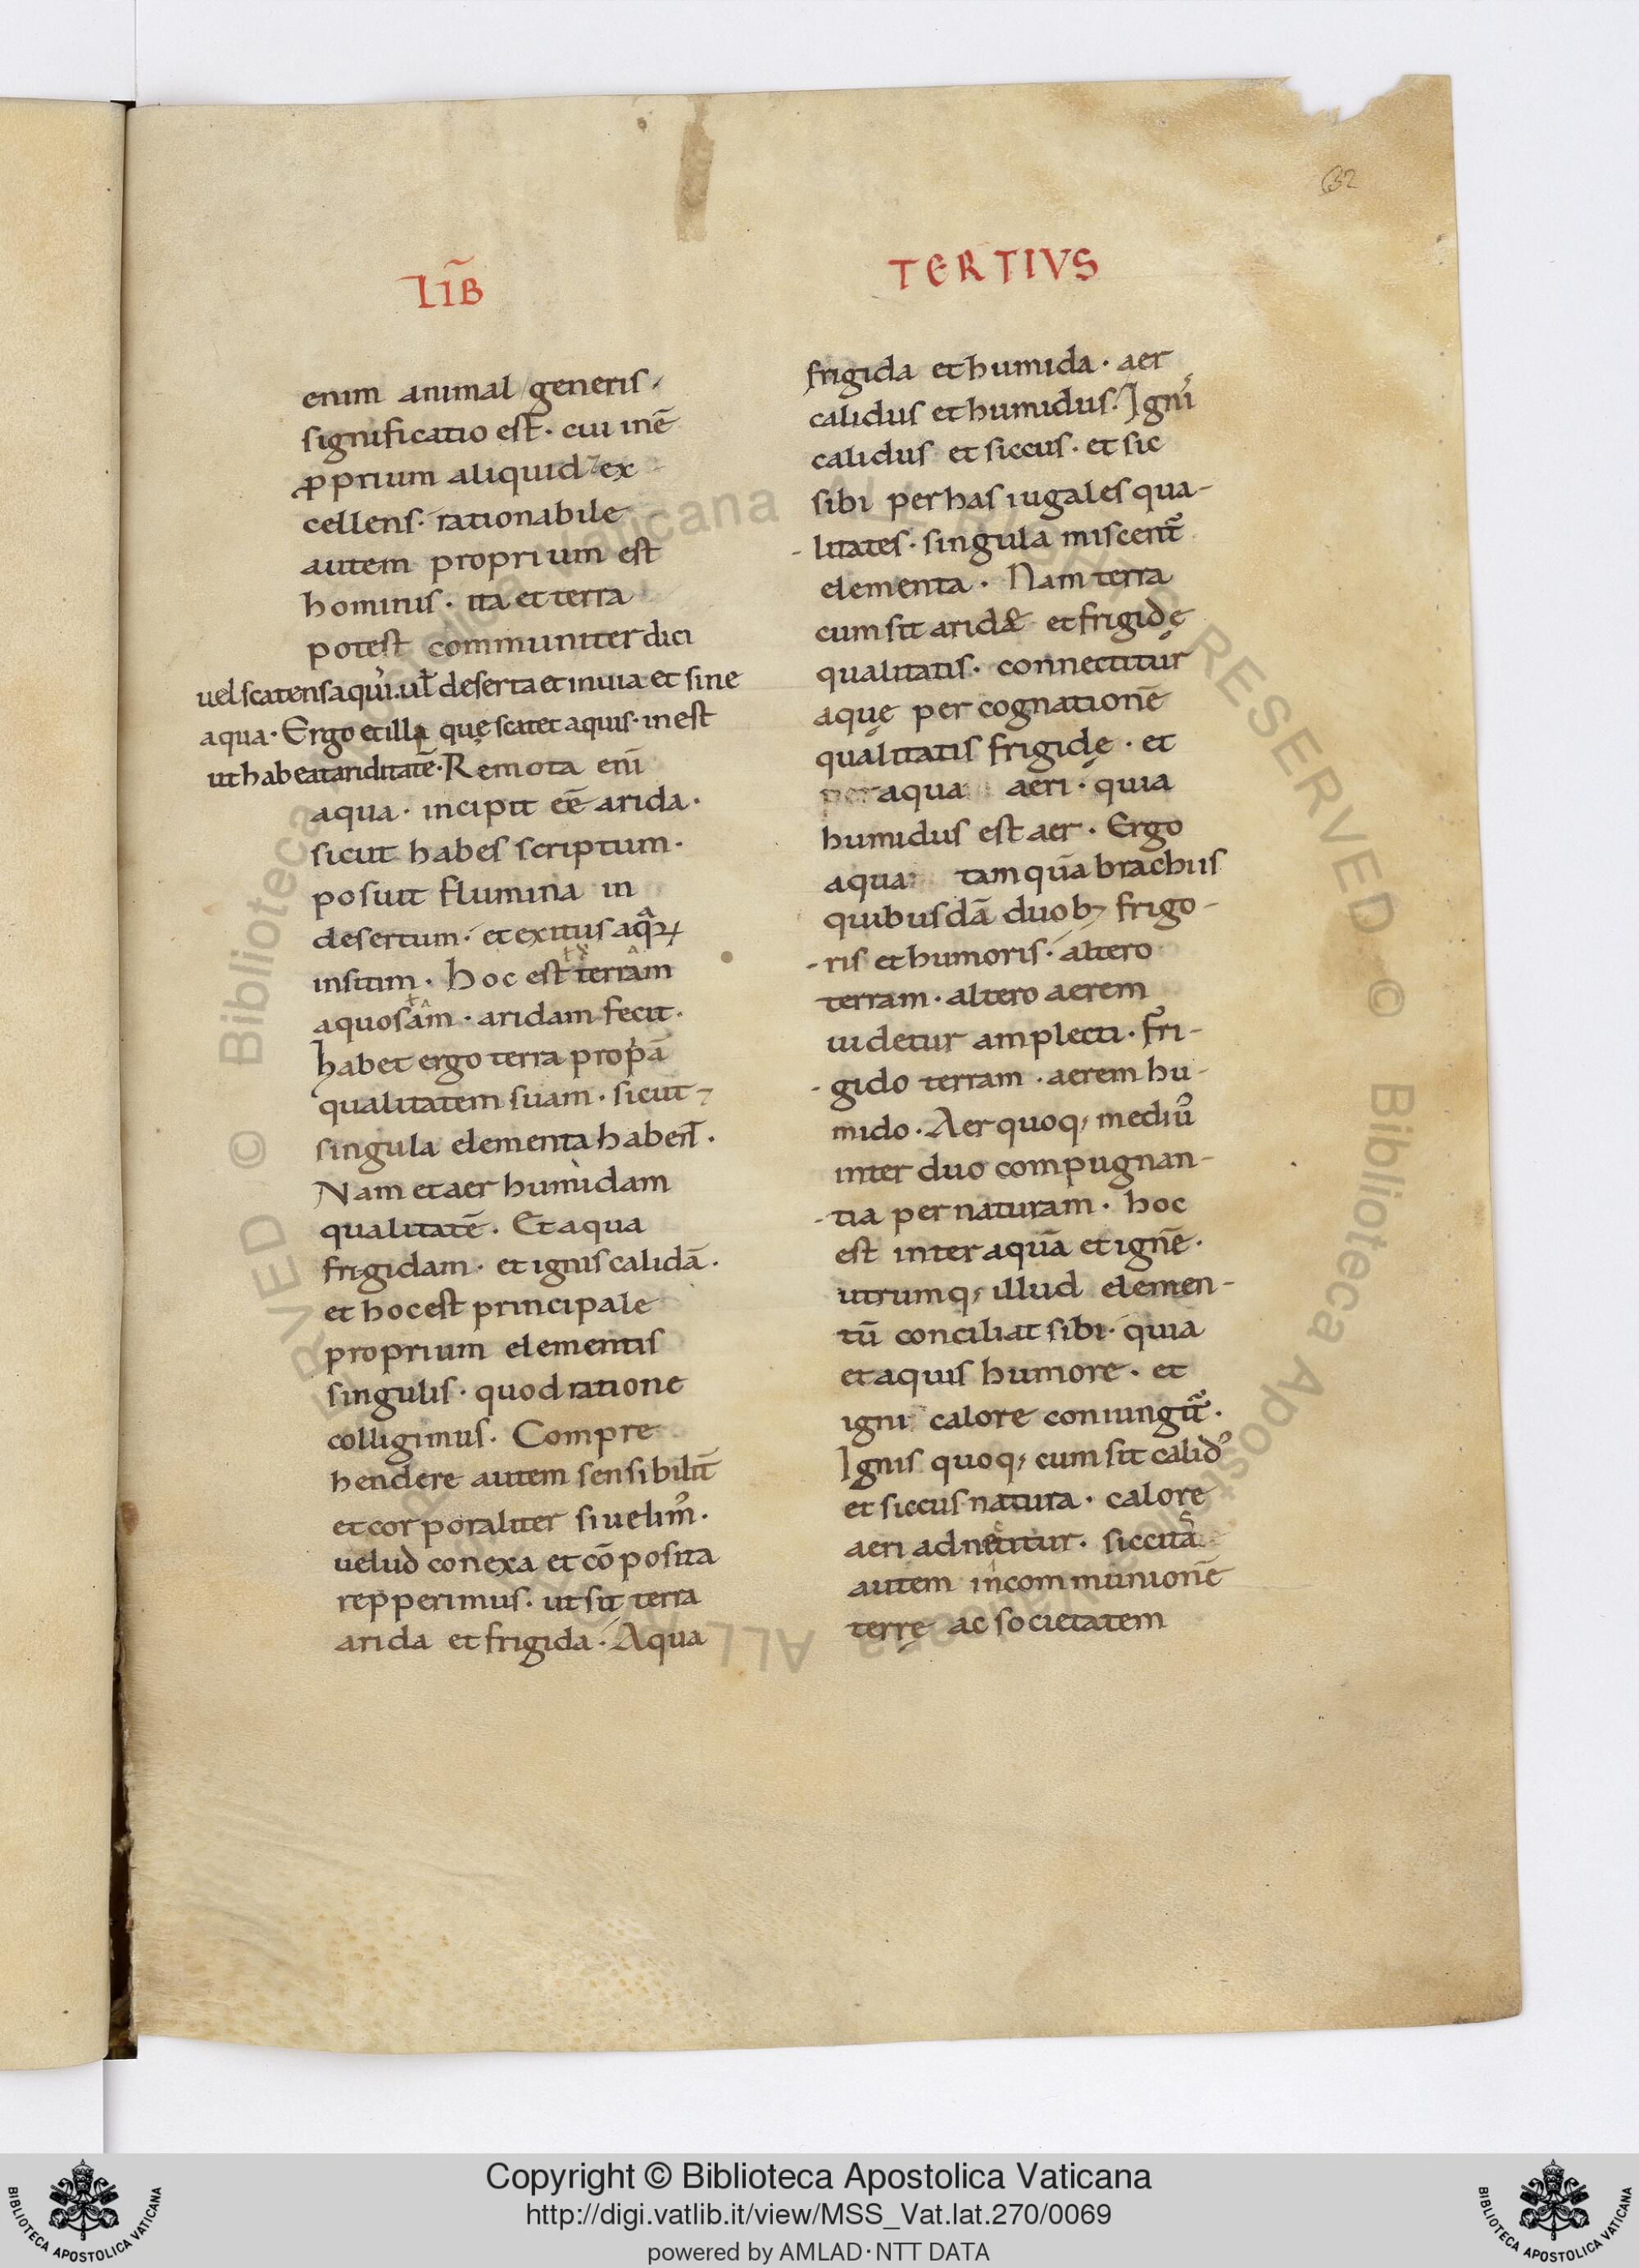 32
LIB̃
TERTIVS
enim animal generis
significatio est· cui inē
ꝓprium aliquid ⁊ ex
cellens· rationabile
autem proprium est
hominis· ita et terra
potest communiter dici
uel scatens aqui᷒· ul̄ deserta et inuia et sine
aqua· Ergo et illa quę scatet aquis· inest
ut habeat ariditatē· Remota eni
aqua· incipit eē arida·
sicut habes scriptum·
posuit flumina in
desertum· et exitus aqꝝ
insitim· hoc est terram
aquosam· aridam fecit·
habet ergo terra propā
qualitatem suam· sicut ⁊
singula elementa habent̄·
Nam et aer humidam
qualitatē· Et aqua
frigidam· et ignis calidā·
et hoc est principale
proprium elementis
singulis· quod ratione
colligimus· Compre
hendere autem sensibilit̄
et corporaliter si uelim᷒·
uelud conexa et cōposita
repperimus· ut sit terra
arida et frigida· Aqua
frigida et humida· aer
calidus et humidus· Igni᷒
calidus et siccus· et sic
sibi per has iugales qua-
-litates· singula miscent᷑
elementa· Nam terra
cum sit arid& et frigidę
qualitatis· connectitur
aquę per cognationē
qualitatis frigidę· et
per aqua aeri· quia
humidus est aer· Ergo
aqua tamquā brachiis
quibusdā duob; frigo-
-ris et humoris· altero
terram· altero aerem
uidetur amplecti· fri-
-gido terram· aerem hu-
mido· Aer quoq; mediu᷒
inter duo compugnan-
-tia per naturam· hoc
est inter aquā et ignē·
utrumq; illud elemen-
tū conciliat sibi· quia
et aquis humore· et
igni calore coniungit᷑·
Ignis quoq; cum sit calid᷒
et siccus natura· calore
aeri adnectitur· siccitas
autem in communionē
terrę ac societatem
© Biblioteca Apostolica Vaticana ALL RIGHTS RESERVED © Biblioteca Apostolica Vaticana ALL RIGHTS RESERVED
Copyright © Biblioteca Apostolica Vaticana
http://digi.vatlib.it/view/MSS_Vat.lat.270/0069
powered by AMLAD·NTT DATA
BIBLIOTECA APOSTOLICA VATICANA
BIBLIOTECA APOSTOLICA VATICANA